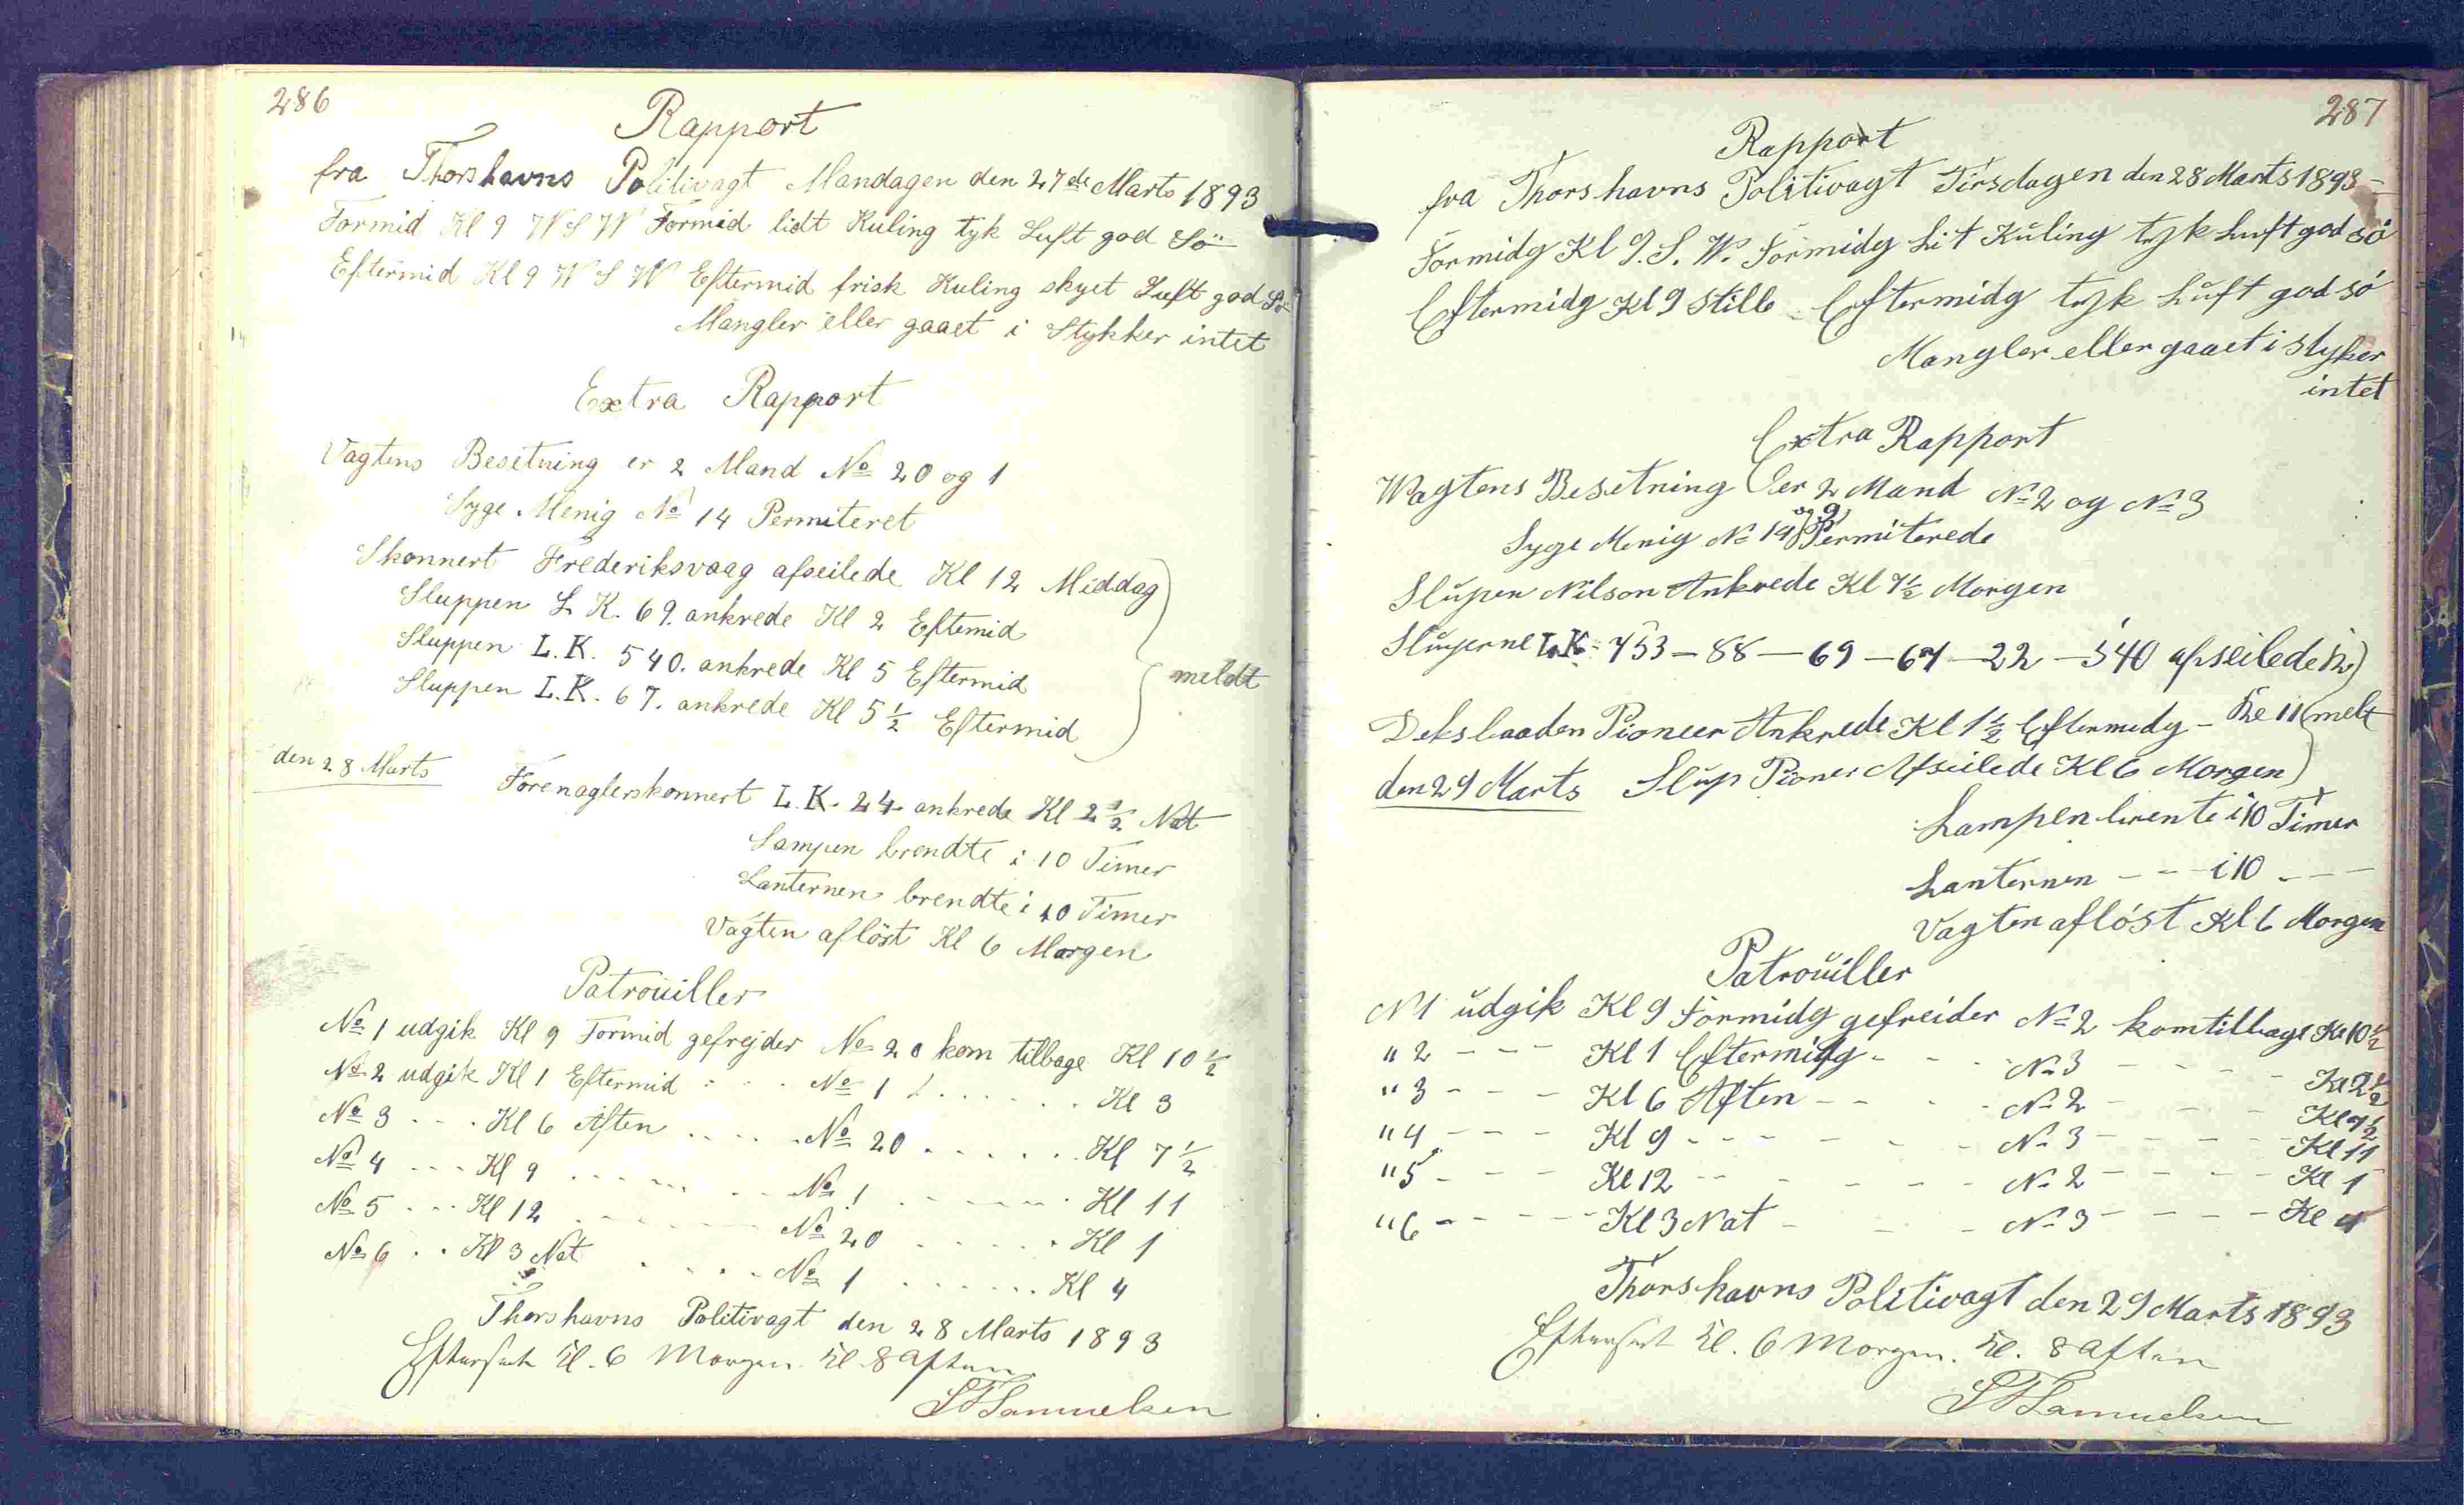 286
Rapport
fra Thorshavns Politivagt Mandagen den 27de Marts 1893
Formid Kl 9 W S W Formid lidt Kuling tyk Luft god Sö
Eftermid Kl 9 W S W Eftermid frisk Kuling skyet Luft god Sö
Mangler eller gaaet i Stykker intet
Extra Rapport
Vagtens Besetning er 2 Mand No 20 og 1
Syge Menig No 14 Permiteret
Skonnert Frederiksvaag afseilede Kl 12 Middag
Sluppen L K. 69. ankrede Kl 2 Eftemid
Sluppen L. K. 540. ankrede Kl 5 Eftermid
meldt
Sluppen L. K. 67. ankrede Kl 5 1/2 Eftermid
den 28 Marts Forenaglerskonnert L. K. 24 ankrede Kl 2 1/2 Nat
Lampen brendte i 10 Timer
Lanternen brendte i 10 Timer
Vagten aflöst Kl 6 Morgen
Patrouiller
No 1 udgik Kl 9 Formid gefrejder No 20 kom tilbage Kl 10 1/2
No 2 udgik Kl 1 Eftermid - - - No 1 - - - - - - Kl 3
No 3 - - - Kl 6 Aften - - - - - No 20 - - - - - - Kl 7 1/2
No 4 - - - Kl 9 - - - - - - No 1 - - - - - - Kl 11
No 5 - - - Kl 12 - - - - - - No 20 - - - - - - Kl 1
No 6 - - Kl 3 Nat - - - - - No 1 - - - - - - Kl 4
Thorshavns Politivagt den 28 Marts 1893
Efterseet Kl. 6 Morgen. Kl. 8 Aften
Samuelsen
287
Rapport
fra Thorshavns Politivagt Tirsdagen den 28 Marts 1893
Formidg Kl 9. S. W. Formidg Lit Kuling tyk Luft god sö
Eftermidg Kl 9 Stille Eftermidg tyk Luft god sö
Mangler eller gaaet i styker
intet
Extra Rapport
Wagtens Besetning er 2 Mand No 2 og No 3
Syge Menig No 14 og 9 Permiterede
Slupen Nilson Ankrede Kl 7 1/2 Morgen
Sluperne L. K. 753 – 88 – 69 – 67 – 22 – 540 afseilede
Deksbaaden Pioneer Ankrede Kl 1 1/2 Eftermidg – Kl 11 melt
den 29 Marts Slup Pioner Afseilede Kl 6 Morgen
Lampen brente i 10 Timer
Lanternen - - - i 10 - - -
Vagten aflöst Kl 6 Morgen
Patrouiller
N 1 udgik Kl 9 Formidg gefreider No 2 kom tilbage Kl 10 1/2
" 2 - - - Kl 1 Eftermidg - - - No 3 - - - - Kl 2 1/2
" 3 - - - Kl 6 Aften - - - No 2 - - - - Kl 7 1/2
" 4 - - - Kl 9 - - - - - - No 3 - - - - - Kl 11
" 5 - - - Kl 12 - - - - - - No 2 - - - - Kl 1
" 6 - - - - Kl 3 Nat - - - No 3 - - - - Kl 4
Thorshavns Politivagt den 29 Marts 1893
Efterseet Kl. 6 Morgen. Kl. 8 Aften
Samuelsen